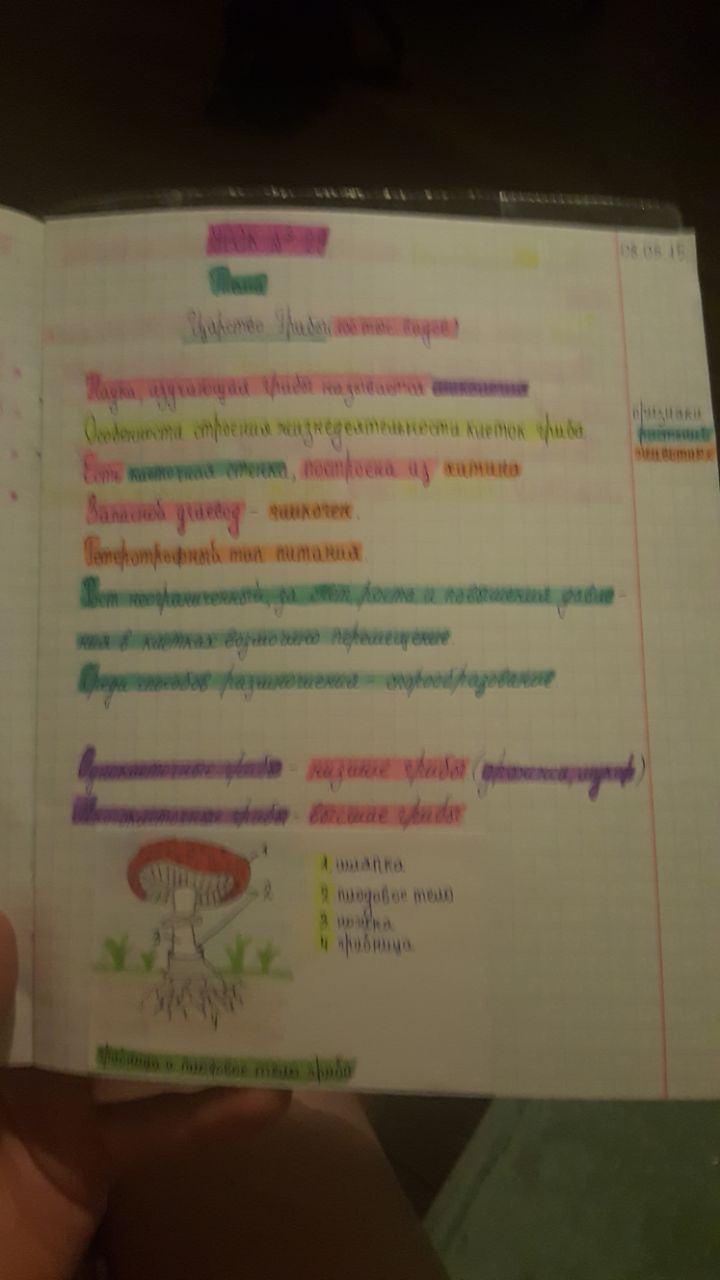 Урок №
08.05.15
Тема
Царство Грибов (100 тыс. видов)
Наука, изучающая грибы называется микология
признаки
растений
животных
Особенности строения жизнедеятельности клеток гриба
Есть клеточная стенка, построена из хитина
Запасной углевод - гликоген.
Гетеротрофный тип питания
Рост неограниченный, за счёт роста и повышения давле-
ния в клетках возможно перемещение.
Среди способов размножения - спорообразование.
Одноклеточные грибы - низшие грибы (дрожжи, мукор)
Многоклеточные грибы - высшие грибы
1
2
3
4
1 шляпка
2 плодовое тело
3 ножка
4 грибница
грибница и плодовое тело гриба